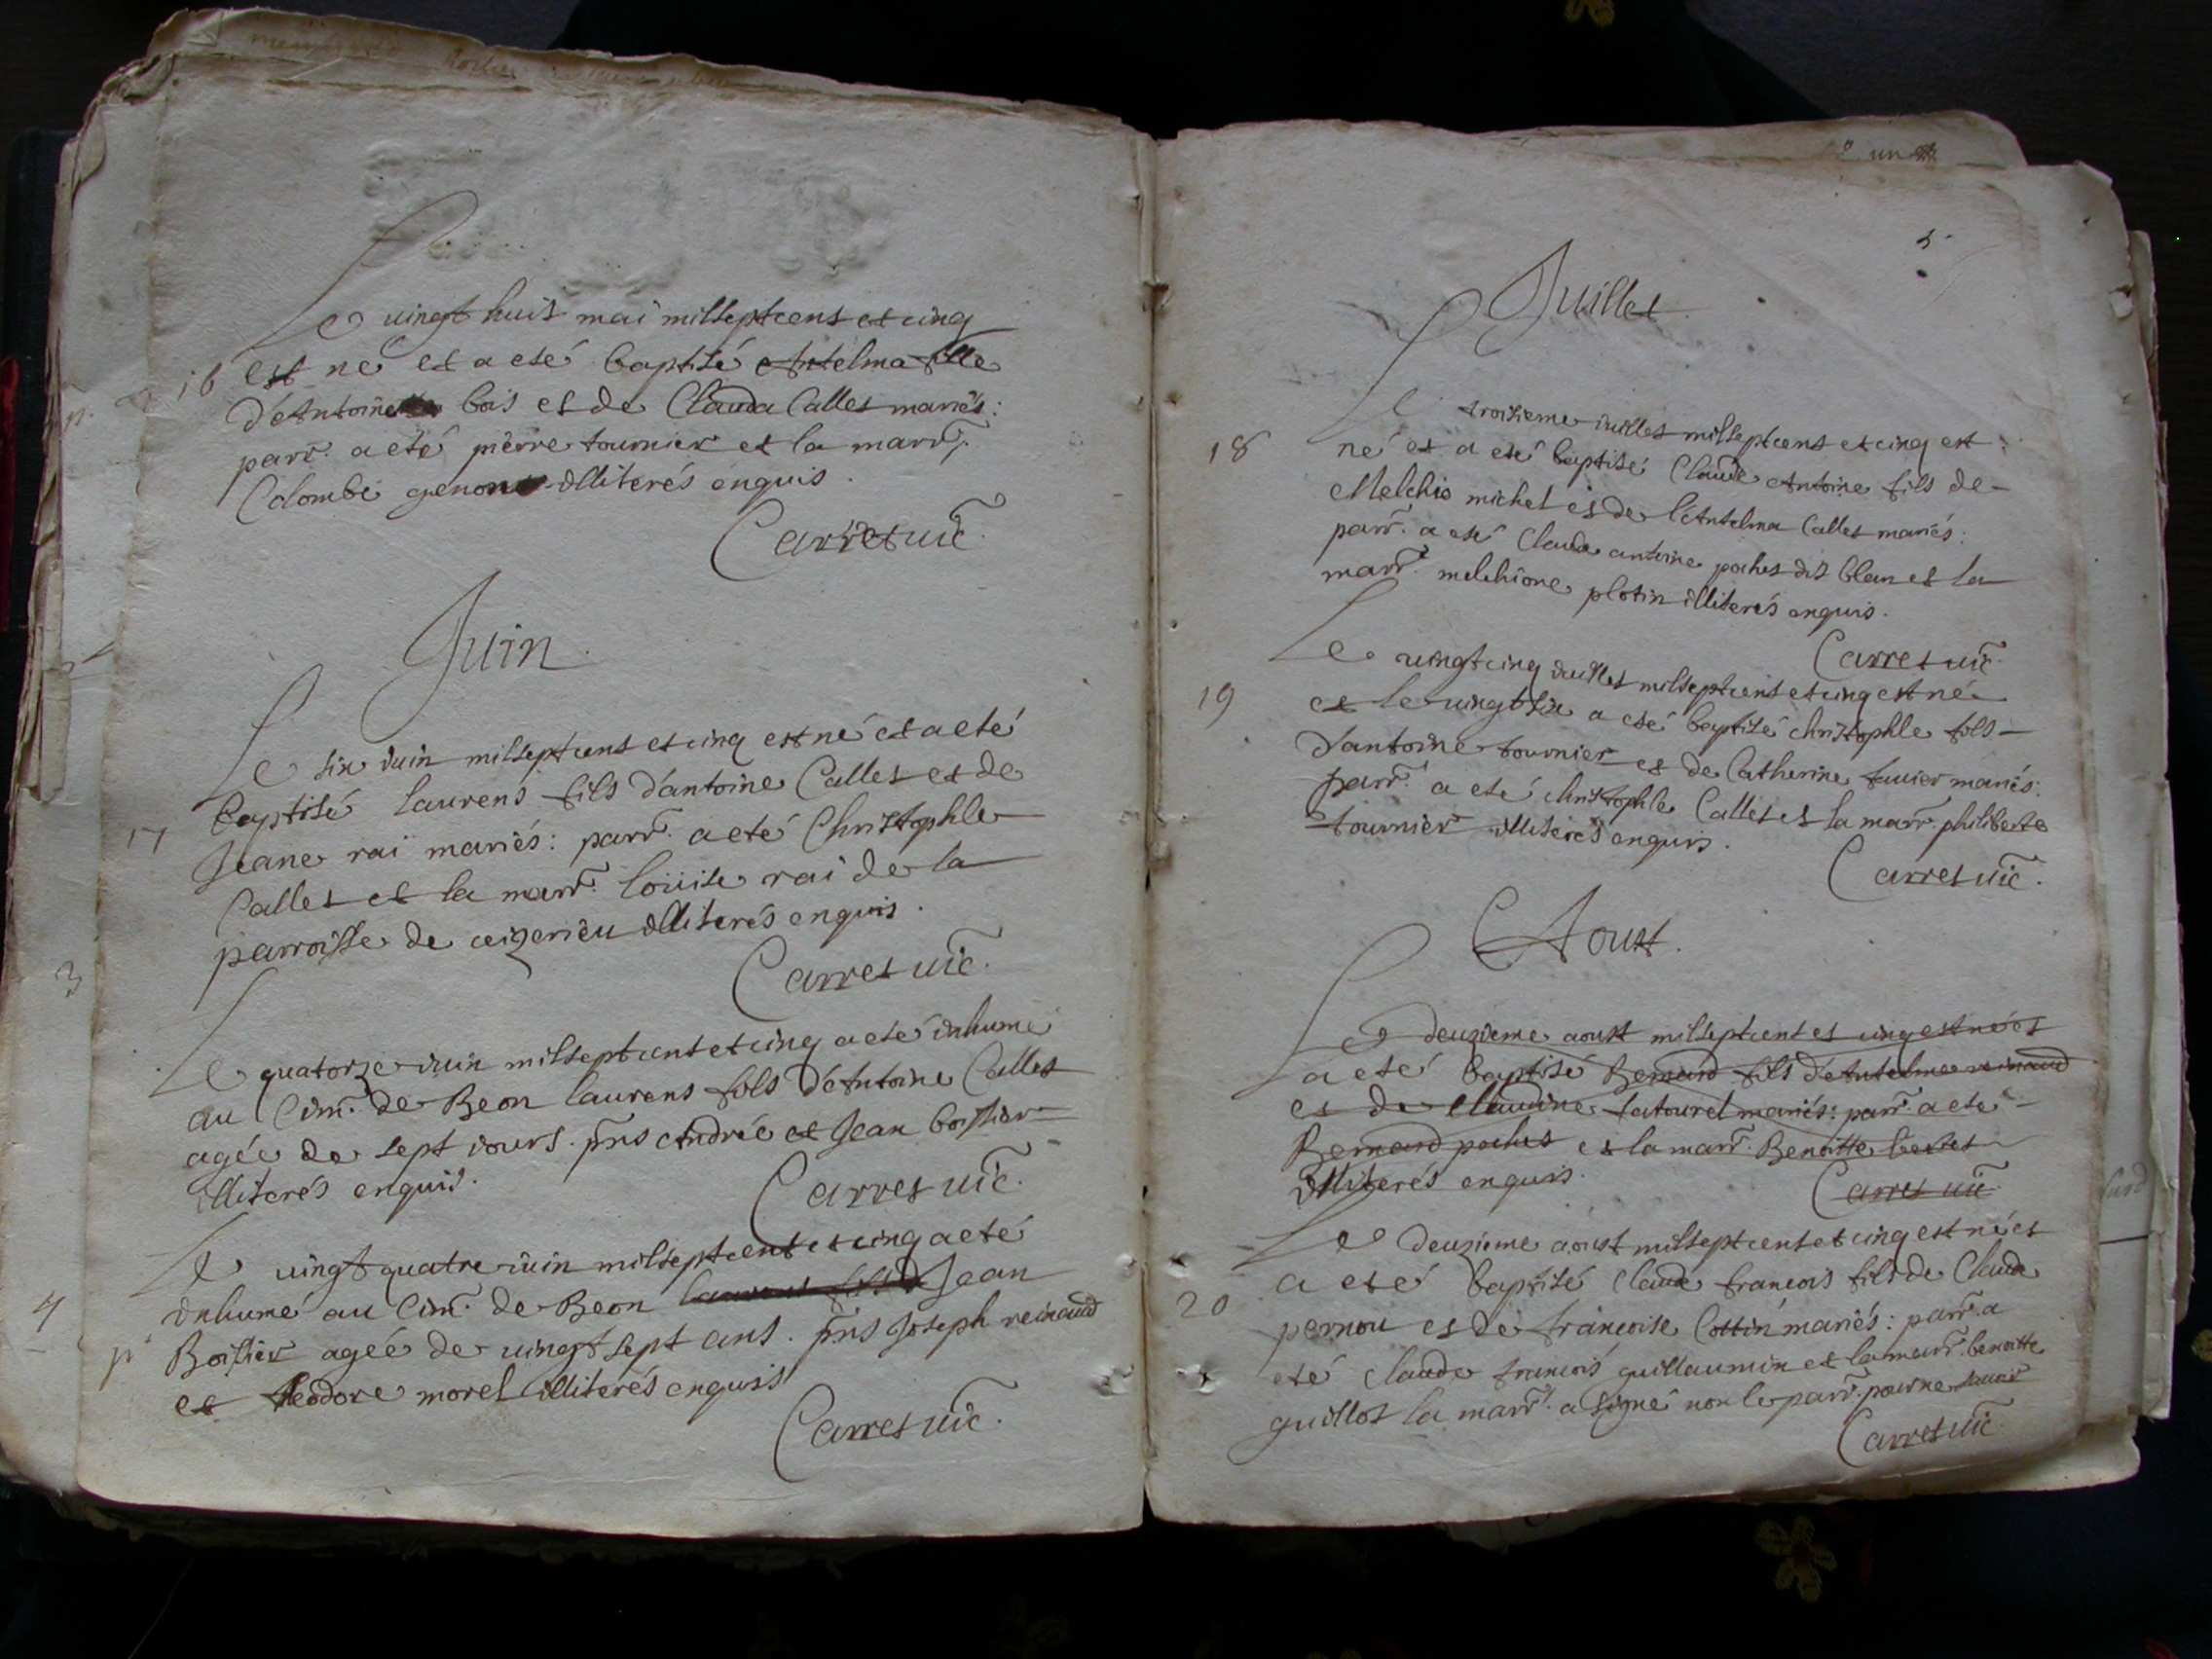 Le vingt huit mai milseptcens et cinq
16 est né et a eté baptisé Antelma fille
d'Antoine bois et de Clauda Callet mariés:
parr. a eté pierre tournier et la marr.
Colombe genon illiterés enquis.
Carret vic.
Juin
Le six iuin milseptcens et cinq est né et a eté
baptisé laurens fils d'antoine Callet et de
17 Jeane rai mariés: parr. a eté Christophle
Callet et la marr. loüise rai de la
parroisse de ceizerieu illiterés enquis.
Carret vic.
3
Le quatorze iuin milseptcent et cinq a eté inhumé
au Cim. de Beon laurens fils d'Antoine Callet
agée de sept iours. pñs André et Jean boissier
illiterés enquis.
Carret vic.
Le vingt quatre iuin milseptcent et cinq a eté
4 inhumé au Cim. de Beon laurens fils d Jean
Boisier ageé de vingt sept ans. pñs Joseph reinaud
et teodore morel illiterés enquis
Carret vic.
5
Juillet
Le troisieme iuillet milseptcens et cinq est
18 né et a eté baptisé Claude Antoine fils de
Melchio michel et de l'Antelma Callet mariés:
parr. a eté Claude antoine pochet dit blan et la
marr. melchione plotin illiterés enquis.
Carret vic.
Le vingtcinq iuillet milseptcent et cinq est né
19 et le vingt six a eté baptisé christophle fils
d'antoine tournier et de Catherine favier mariés:
parr. a eté christophle Callet et la marr. philiberte
tournier illiterés enquis.
Carret vic.
Aoust.
Le deuzieme aoust milseptcent et cinq est né et
a eté baptisé Bernard fils d'Antelme reinaud
et de Claudine latourel mariés: parr. a eté
Bernard pochet et la marr. Benoitte
illiterés enquis.
Carret vic.
Le deuzieme aoust milseptcent et cinq est né et
a eté baptisé Claude francois fils de Claude
20 pernou et de francoise Cottin mariés: parr. a
eté Claude francois guillaumin et la marr. benoitte
guillot la marr. a signé non le parr. pour ne scavoir
Carret vic.